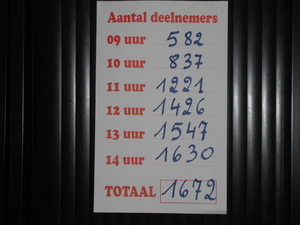 Aantal deelnemers
09 uur 582
10 uur 837
11 uur 1221
12 uur 1426
13 uur 1547
14 uur 1630
TOTAAL 1672